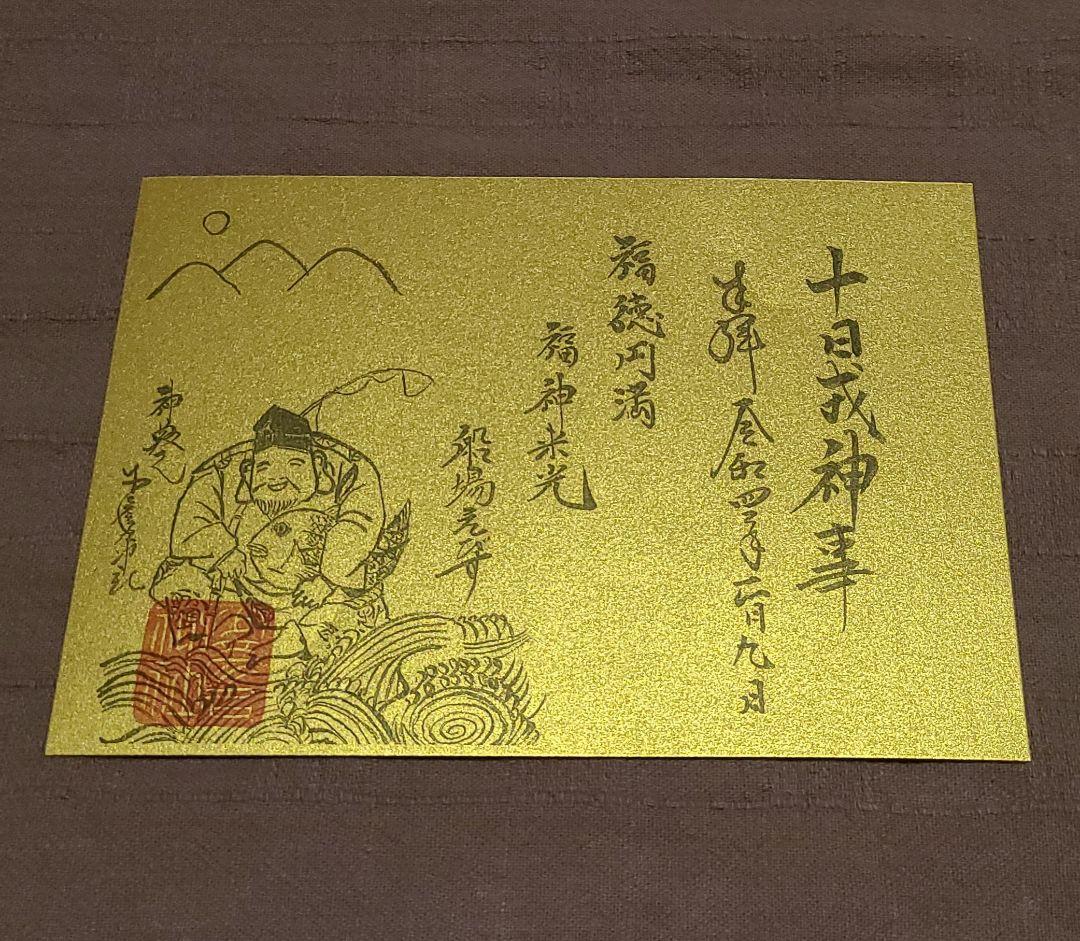 十日戎神事
奉拝 令和四年正月九日
福徳円満
福神来光
船場